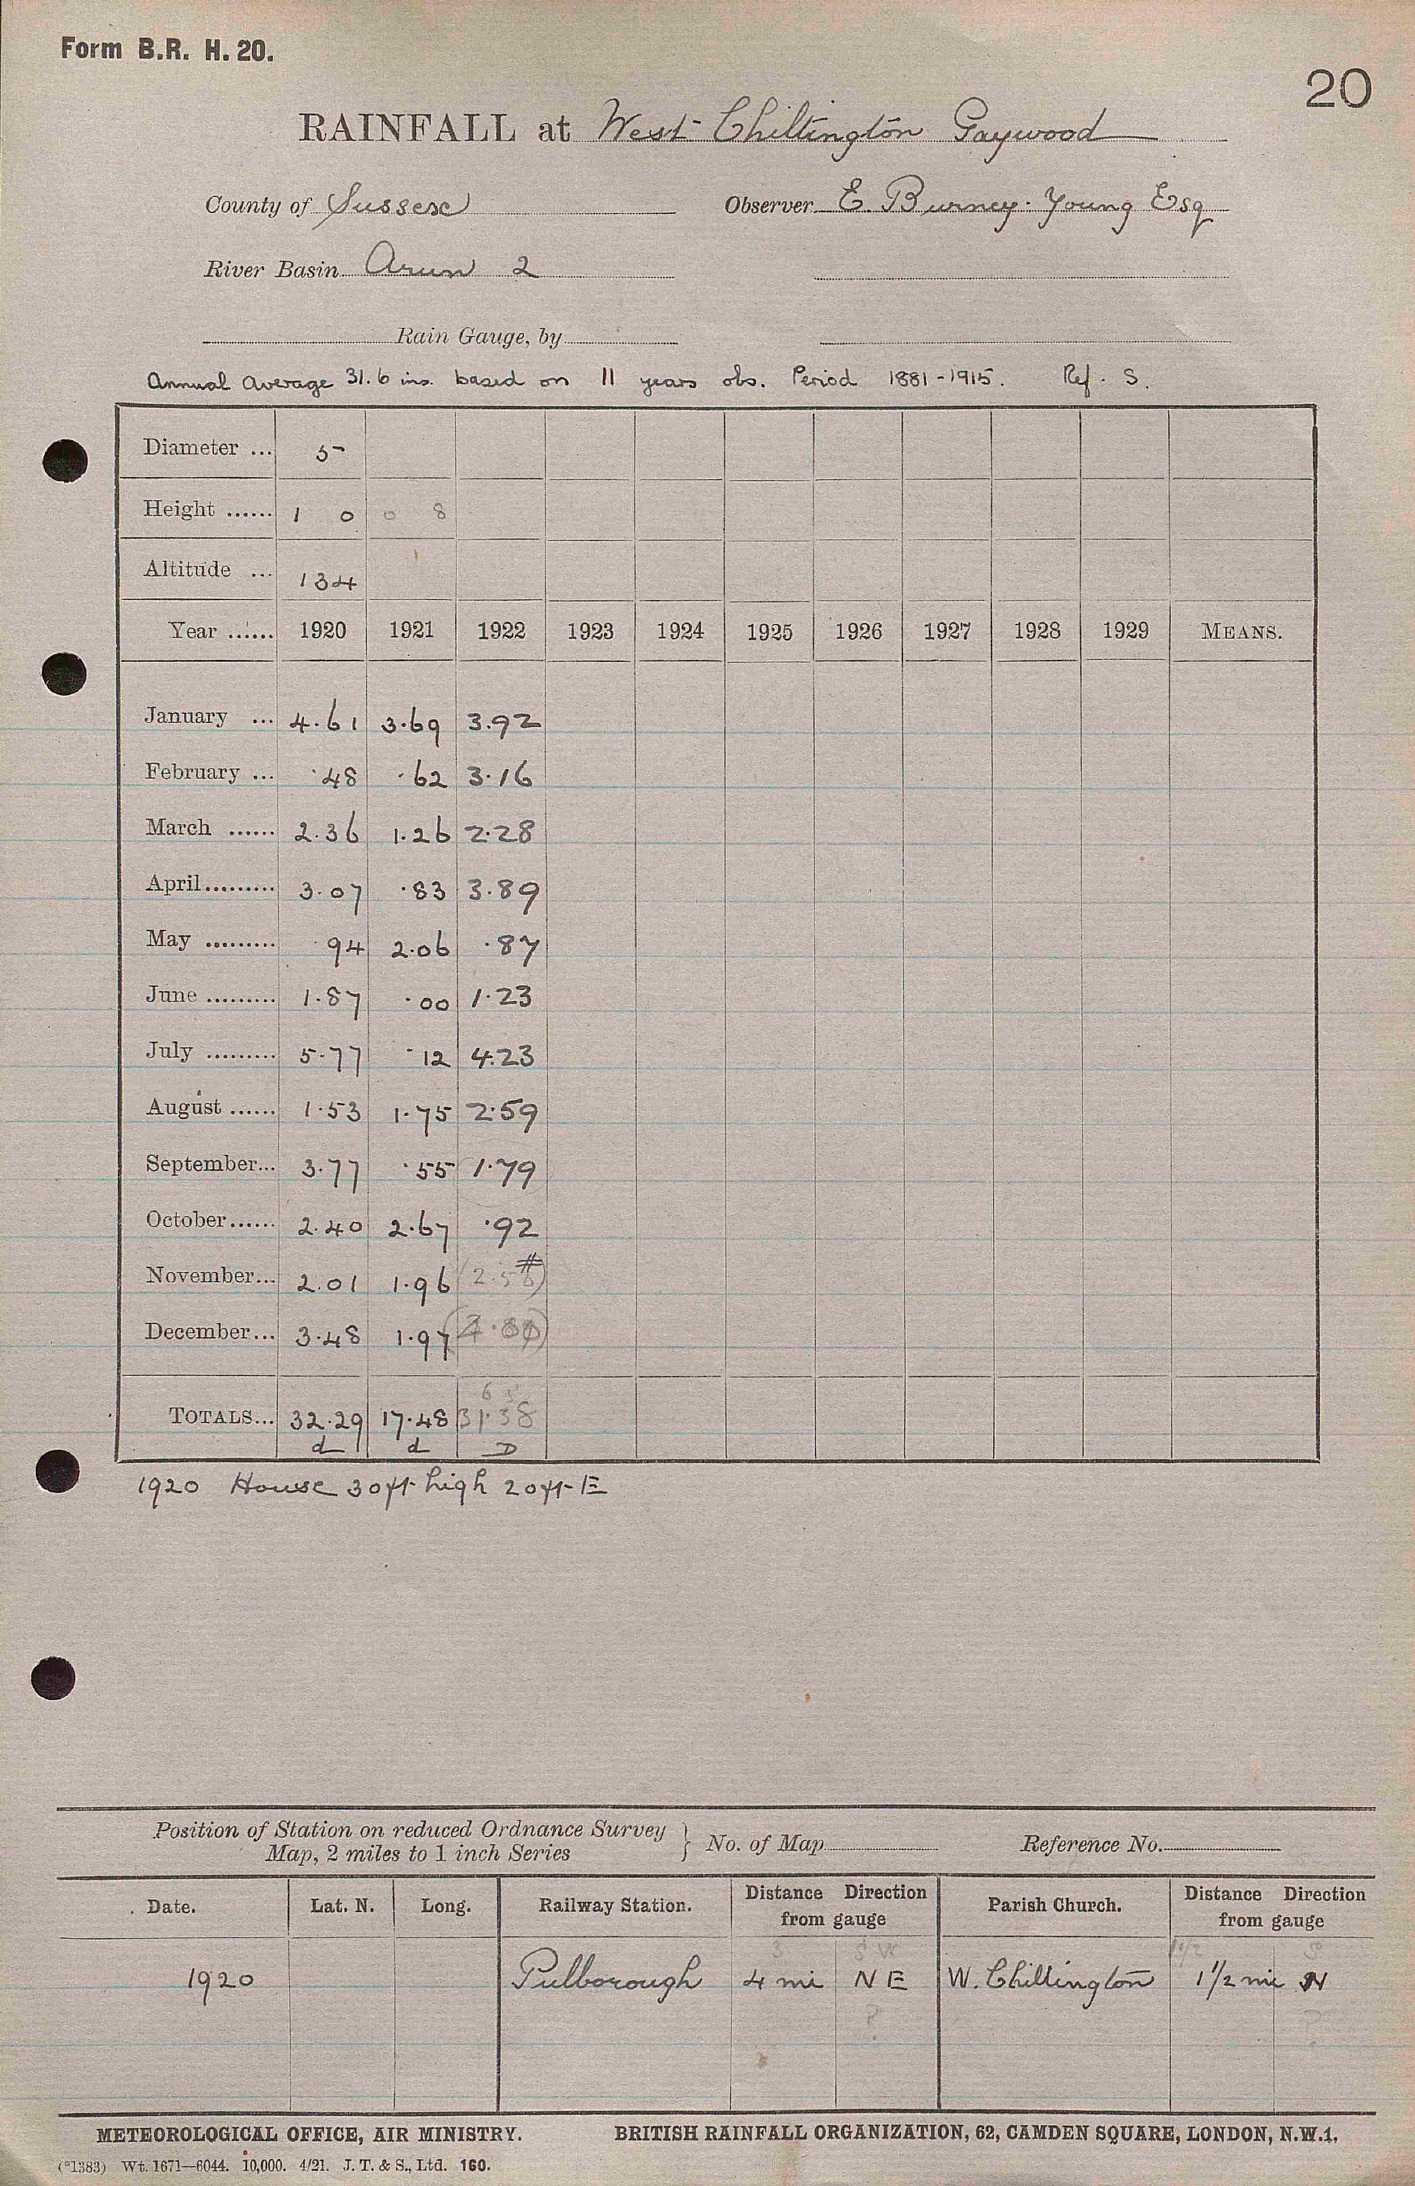 Form B.R. H. 20.
20
RAINFALL at West Chiltington Gaywood
County of Sussex Observer E. Burney-Young Esq
River Basin Arun 2
Rain Gauge, by
Annual Average 31.6 ins. based on 11 years obs. Period 1881-1915. Ref. S.
Diameter ... 5
Height ...... 1 0 0 8
Altitude ... 134
Year ...... 1920 1921 1922 1923 1924 1925 1926 1927 1928 1929 MEANS.
January ... 4.61 3.69 3.92
February ... .48 .62 3.16
March ...... 2.36 1.26 2.28
April ......... 3.07 .83 3.89
May ......... .94 2.06 .87
June ......... 1.87 .00 1.23
July ......... 5.77 .12 4.23
August ...... 1.53 1.75 2.59
September... 3.77 .55 1.79
October...... 2.40 2.67 .92
November... 2.01 1.96 #
December... 3.48 1.97
6 5
TOTALS... 32.29 17.48 31.38
d d D
1920 House 30ft high 20ft E
Position of Station on reduced Ordnance Survey
Map, 2 miles to 1 inch Series } No. of Map Reference No.
Date. Lat. N. Long. Railway Station. Distance Direction from gauge Parish Church. Distance Direction from gauge
3 SW 1 1/2 S
1920 Pulborough 4 mi NE W. Chillington 1 1/2 mi N
? ?
METEOROLOGICAL OFFICE, AIR MINISTRY. BRITISH RAINFALL ORGANIZATION, 62, CAMDEN SQUARE, LONDON, N.W.1.
(*1383) Wt. 1671—6044. 10,000. 4/21. J. T. & S., Ltd. 160.